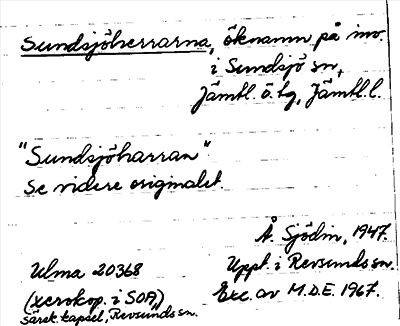 Sundsjöherrarna, öknamn på inv.
i Sundsjö sn,
Jämtl. ö. tg, Jämtl. l.
"Sundsjöharran"
Se vidare originalet.
Å. Sjödin, 1947.
Ulma 20368
Uppt. i Revsunds sn.
(xerokop. i SOA,)
Exc. av M.D.E. 1967.
särsk. kapsel, Revsunds sn.